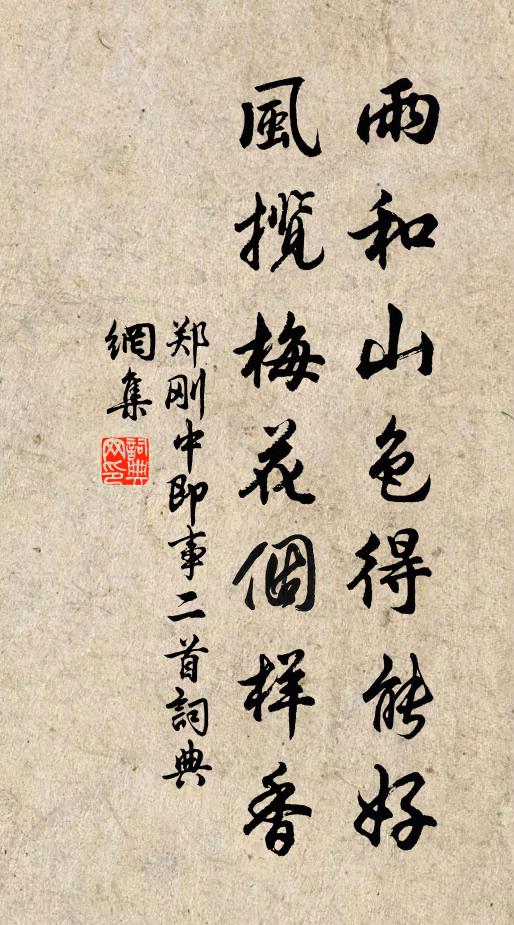 雨和山色得能好
風攬梅花個样香
郑刚中即事二首詞典
網集
詞典
网印